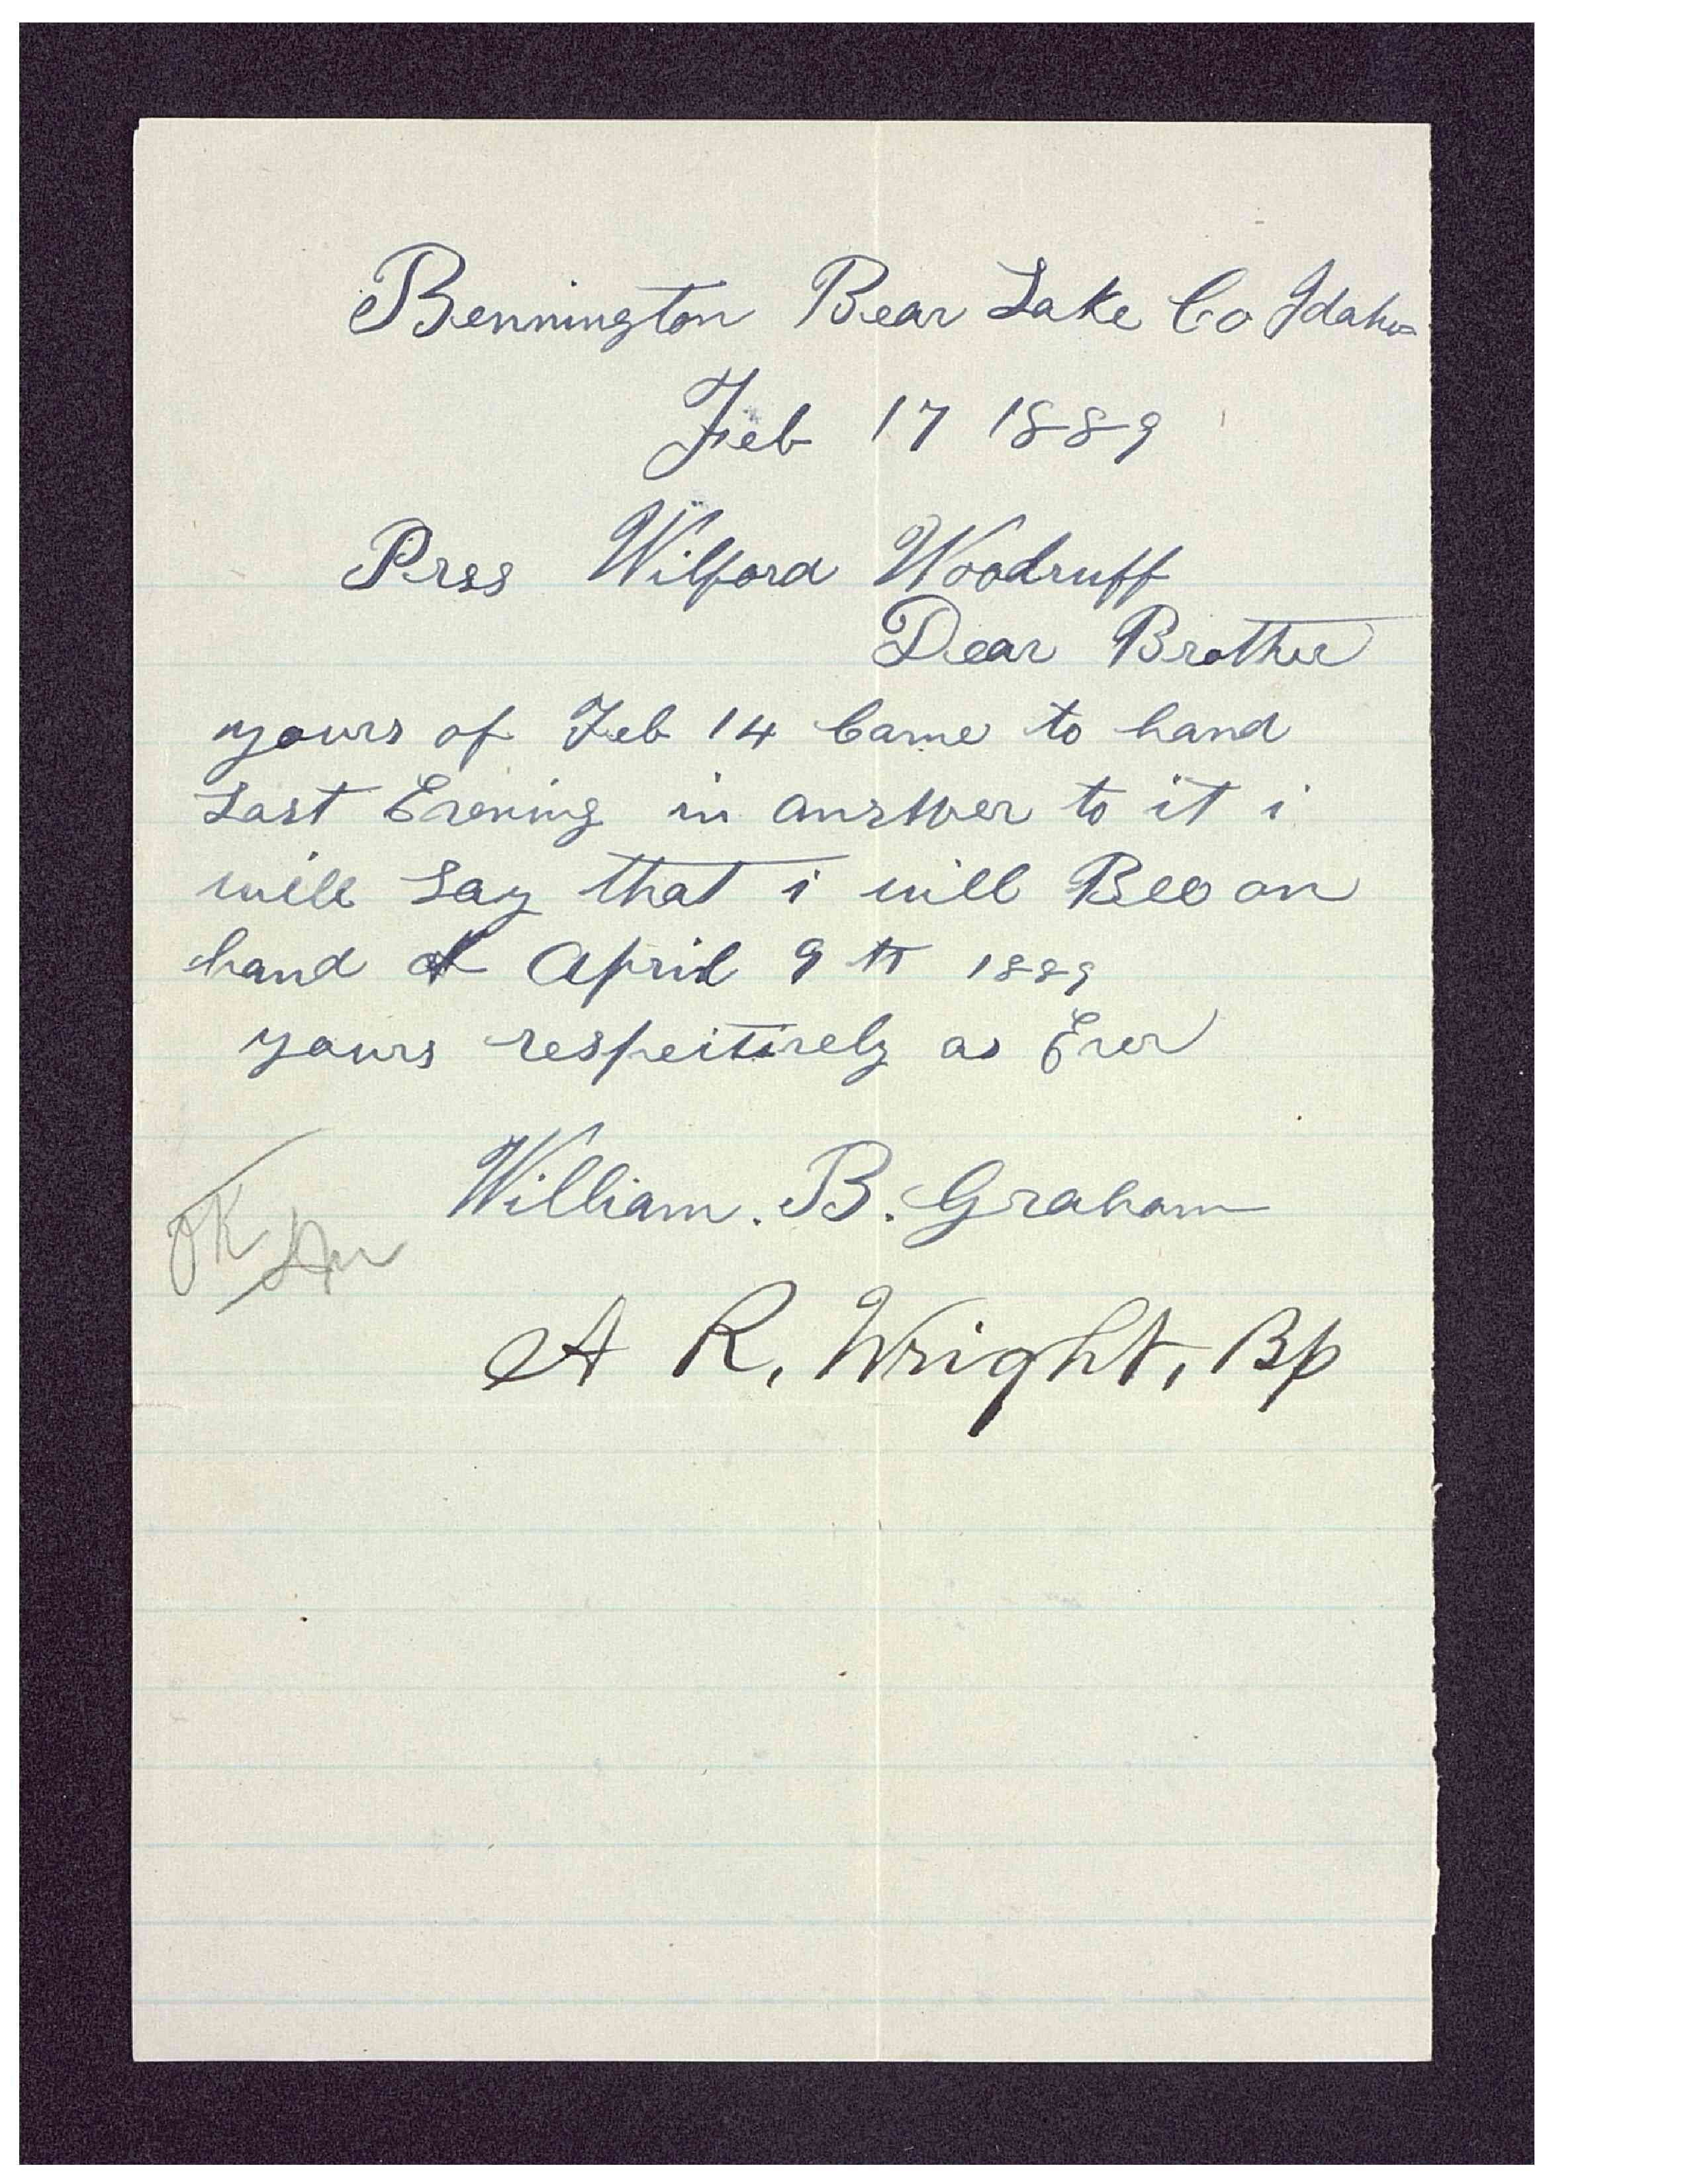 Bennington Bear Lake Co Idaho
Feb 17 1889
Pres Wilford Woodruff
Dear Brother
yours of Feb 14 Came to hand
Last Evening in answer to it i
will Say that i will Bee on
hand April 9th 1889
yours respectively as Ever
William. B. Graham
OK
A R, Wright, Bp